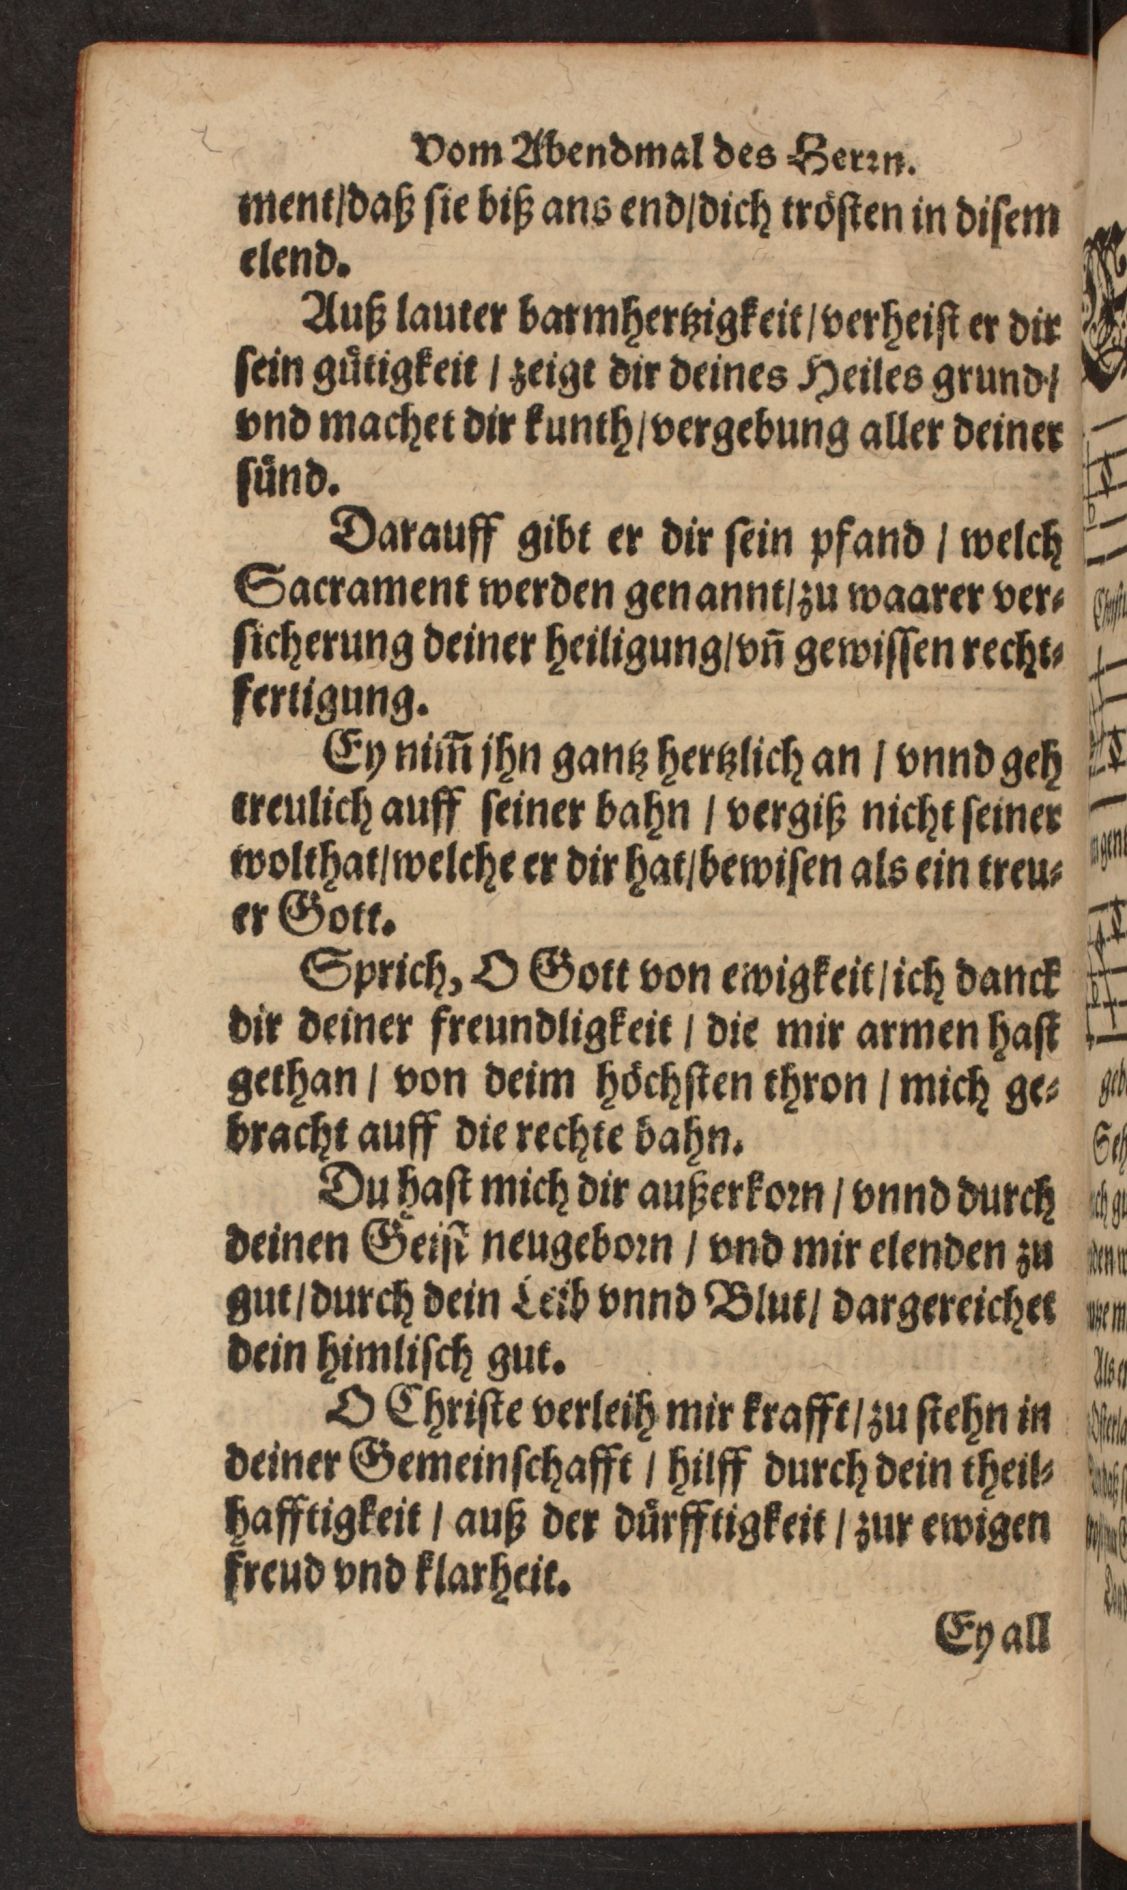 Vom Abendmal des Herrn.
ment/daß sie biß ans end/dich trösten in disem
elend.
Auß lauter barmhertzigkeit/verheist er dir
sein gütigkeit / zeigt dir deines Heiles grund/
vnd machet dir kunth/vergebung aller deiner
sünd.
Darauff gibt er dir sein pfand / welch
Sacrament werden genannt/zu waarer ver-
sicherung deiner heiligung/vñ gewissen recht-
fertigung.
Ey nim̃ jhn gantz hertzlich an / vnnd geh
treulich auff seiner bahn / vergiß nicht seiner
wolthat/welche er dir hat/bewisen als ein treu-
er Gott.
Sprich, O Gott von ewigkeit/ich danck
dir deiner freundligkeit / die mir armen hast
gethan / von deim höchsten thron / mich ge-
bracht auff die rechte bahn.
Du hast mich dir außerkorn / vnnd durch
deinen Geist neugeborn / vnd mir elenden zu
gut/durch dein Leib vnnd Blut/ dargereichet
dein himlisch gut.
O Christe verleih mir krafft/zu stehn in
deiner Gemeinschafft / hilff durch dein theil-
hafftigkeit / auß der dürfftigkeit / zur ewigen
freud vnd klarheit.
Ey all